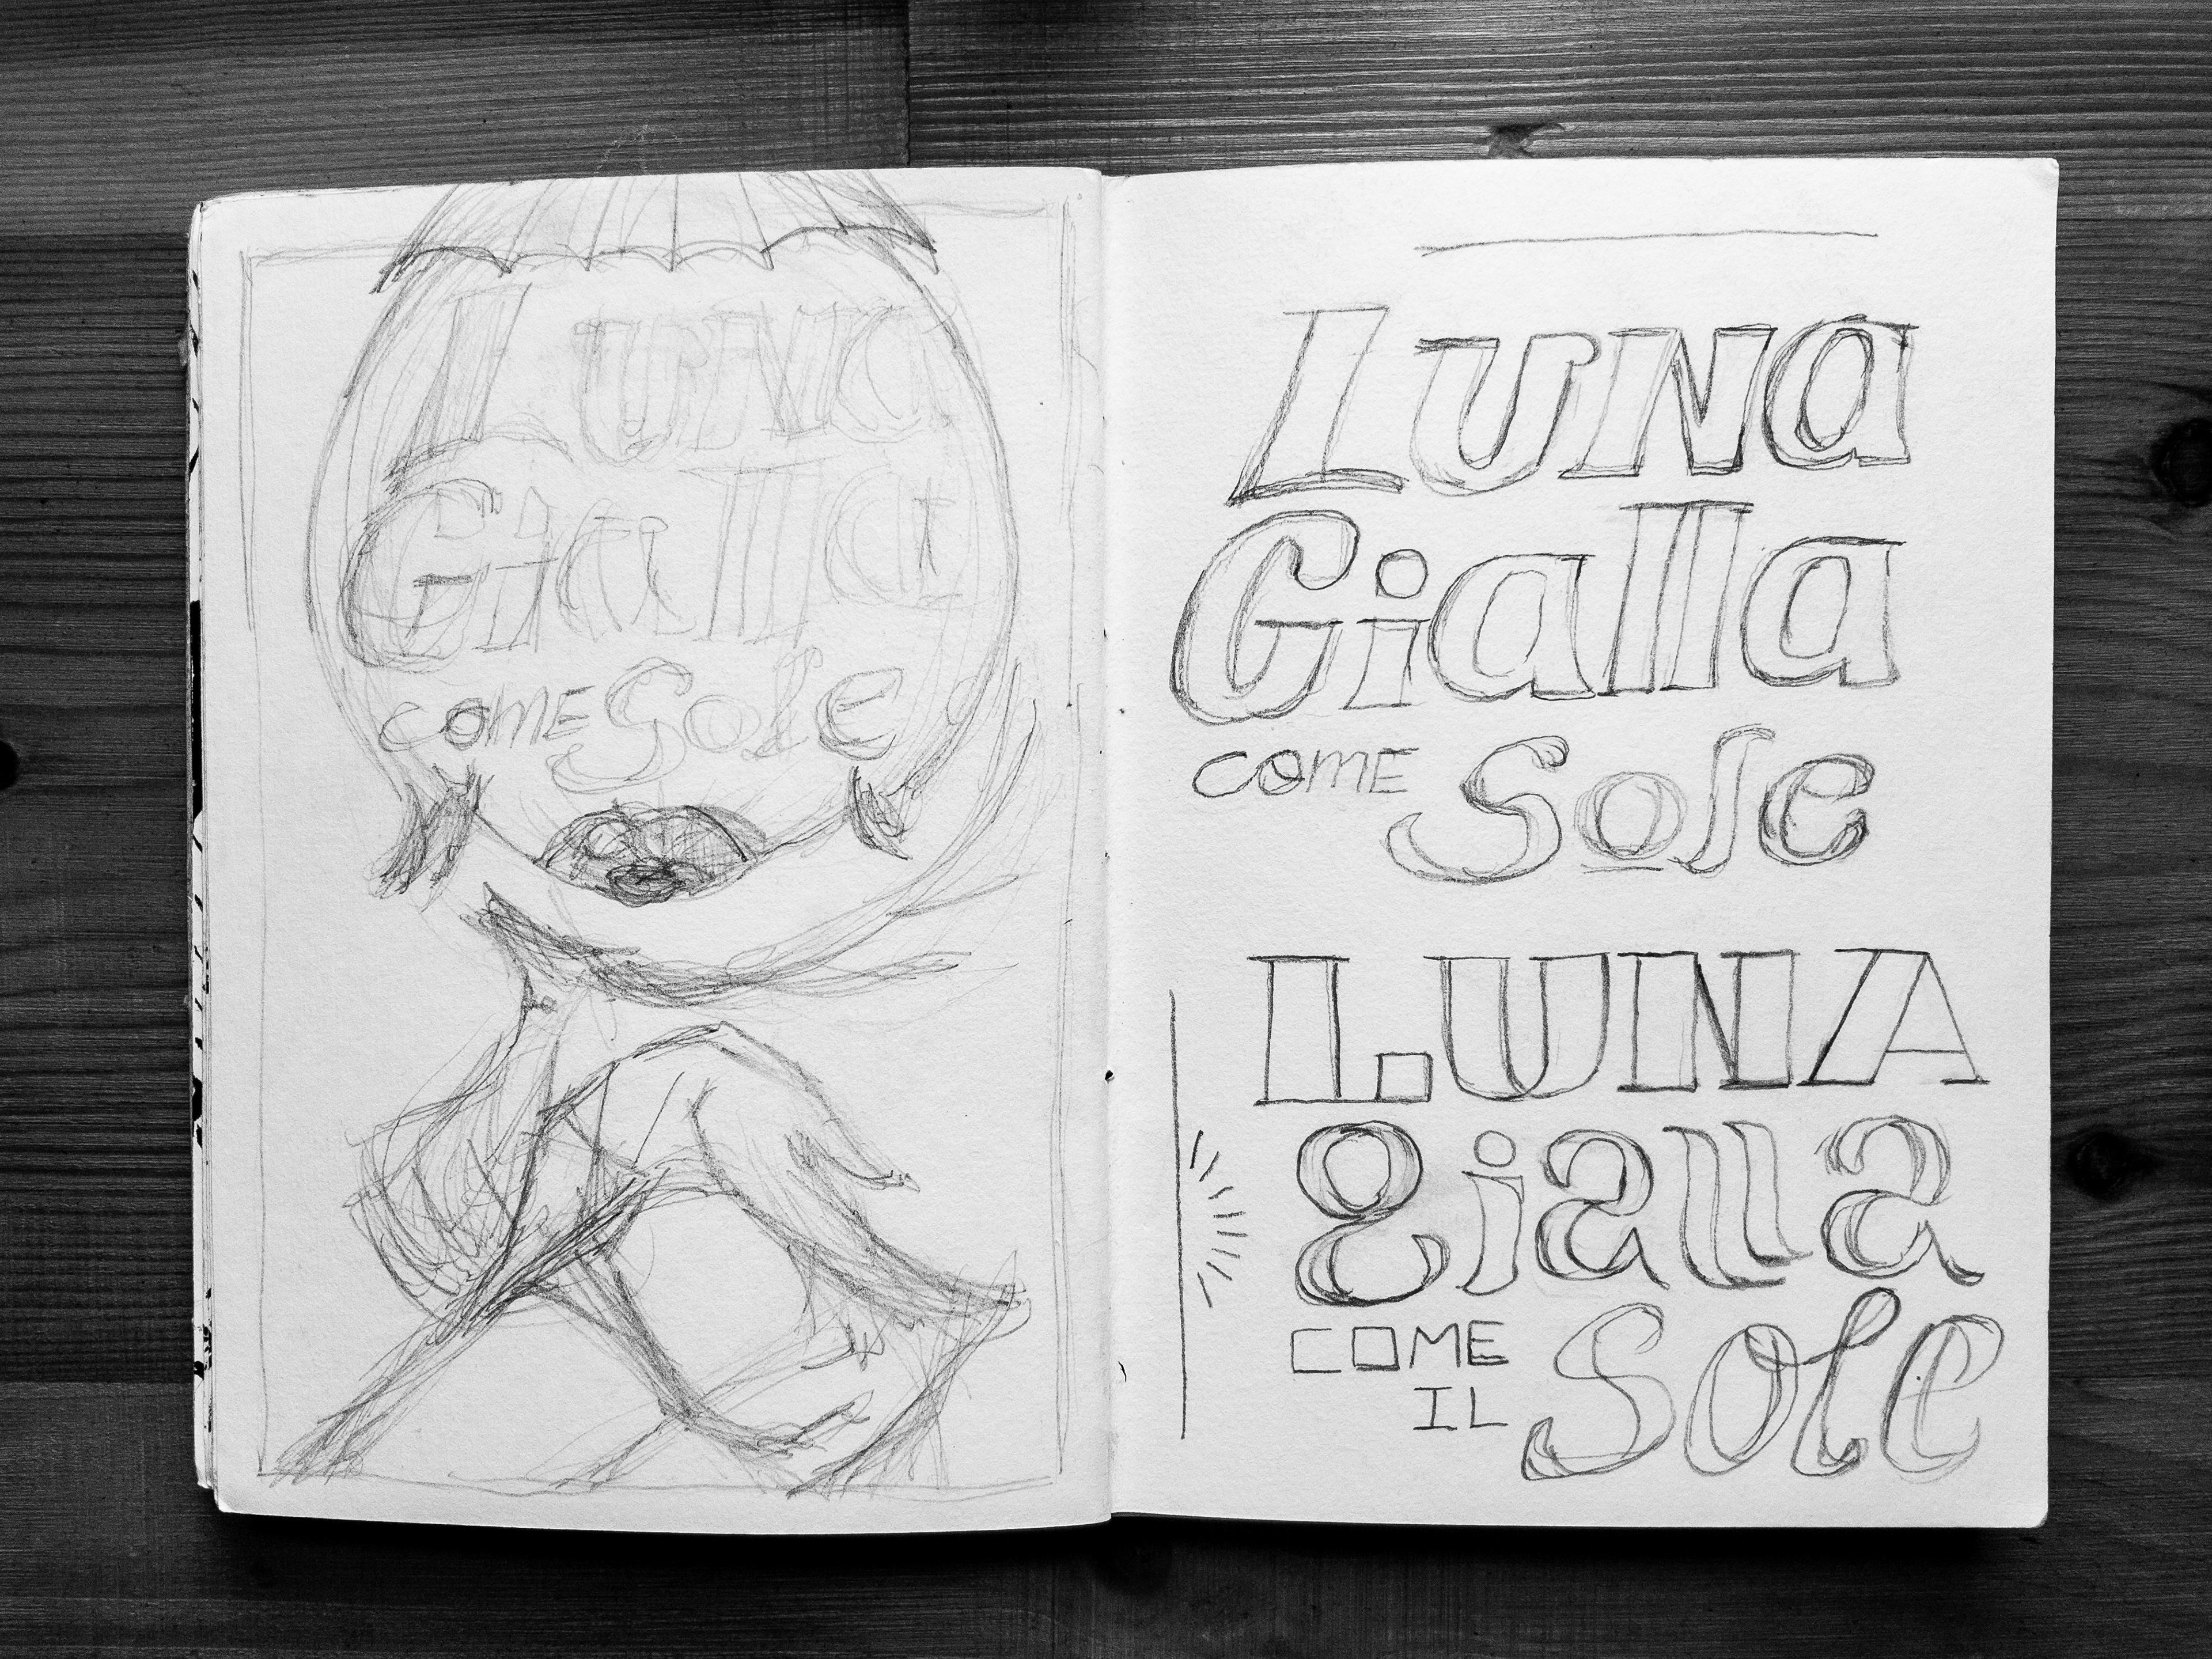 Luna
Gialla
COME Sole
Luna
Gialla
COME Sole
LUNA
gialla
COME
IL Sole